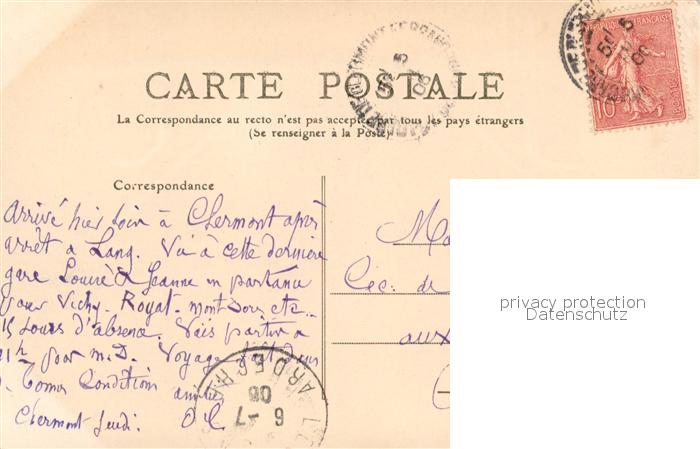 CARTE POSTALE
La Correspondance au recto n'est pas acceptée par tous les pays étrangers
(Se renseigner à la Poste)
RÉPUBLIQUE FRANÇAISE
10
Correspondance
Arrivé hier soir à Clermont après
arrêt à Lang. Vu à cette dernière
gare Louise & Jeanne en partance
pour Vichy. Royat. mont Dore, etc..
15 Jours d'absence. Vais partir à
11h pour m.D. Voyage fait dans
Conditions
Clermont Jeudi.
ARDECHE
6 -7
06
Ma
de
aux
privacy protection
Datenschutz